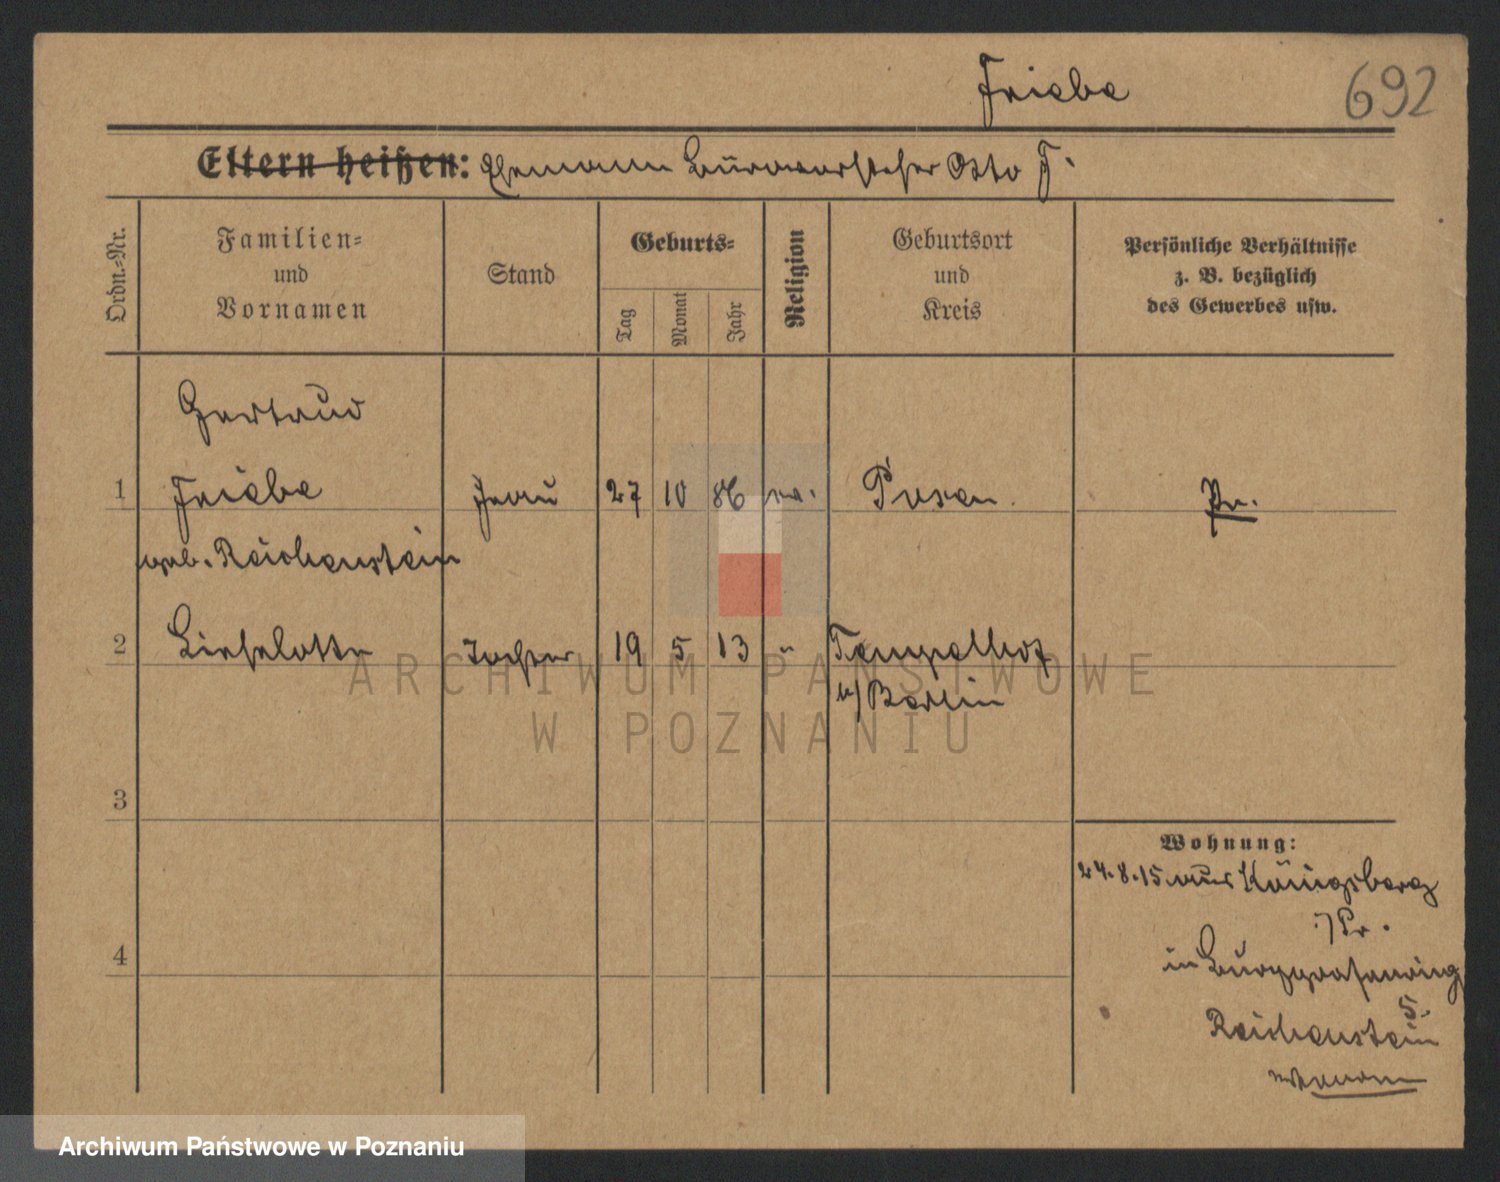 Friebe
692
Eltern heißen: Ehemann Bürovorsteher Otto F.
Ordn.-Nr.
Familien-
und
Vornamen
Stand
Geburts-
Tag
Monat
Jahr
Religion
Geburtsort
und
Kreis
Persönliche Verhältnisse
z. B. bezüglich
des Gewerbes usw.
Gertrud
1 Friebe Frau 27 10 86 ev. Posen Pr.
geb. Reichenstein
2 Lieselotte Tochter 19 5 13 " Tempelhof
b/Berlin
3
4
Wohnung:
24.8.15 aus Königsberg
i/Pr.
in Burggrafenring
5.
Reichenstein
ARCHIWUM PAŃSTWOWE
W POZNANIU
Archiwum Państwowe w Poznaniu